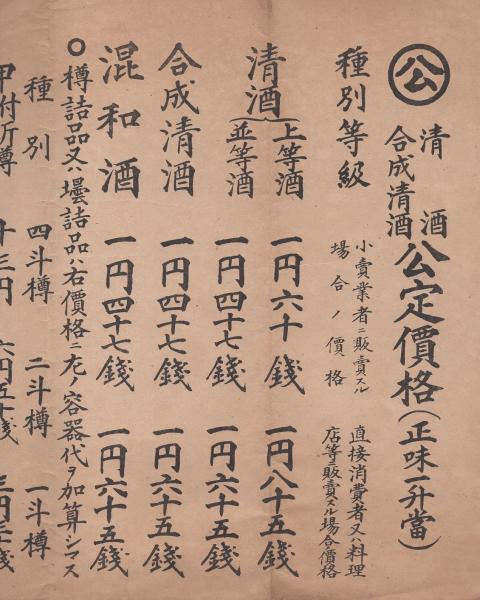 ㊢ 清酒 合成清酒 公定價格(正味一升當)
種別等級
小賣業者ニ販賣スル場合ノ價格
直接消費者又ハ料理店等販賣スル場合價格
清酒
上等酒 一円六十錢 一円八十五錢
並等酒 一円四十七錢 一円六十五錢
合成清酒 一円四十七錢 一円六十五錢
混和酒 一円四十七錢 一円六十五錢
○樽詰品又ハ壜詰品ハ右價格ニ左ノ容器代ヲ加算シマス
種別 四斗樽 二斗樽 一斗樽
甲付斤樽 十三円 六円五十錢 三円三錢